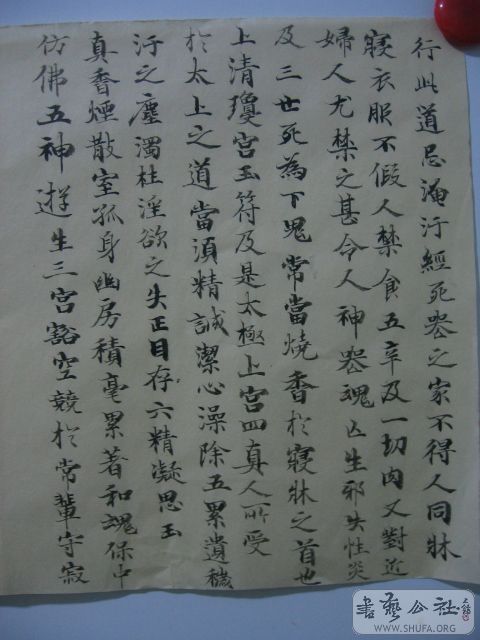 行此道忌淹汙經死喪之家不得人同牀
寢衣服不假人禁食五辛及一切肉又對近
婦人尤禁之甚令人神喪魂亡生邪失性災
及三世死為下鬼常當燒香於寢牀之首也
上清瓊宮玉符及是太極上宮四真人所受
於太上之道當須精誠潔心澡除五累遺穢
汙之塵濁杜淫欲之失正目存六精凝思玉
真香煙散室孤身幽房積毫累著和魂保中
仿佛五神遊生三宮豁空競於常輩守寂
書藝公社
WWW.SHUFA.ORG